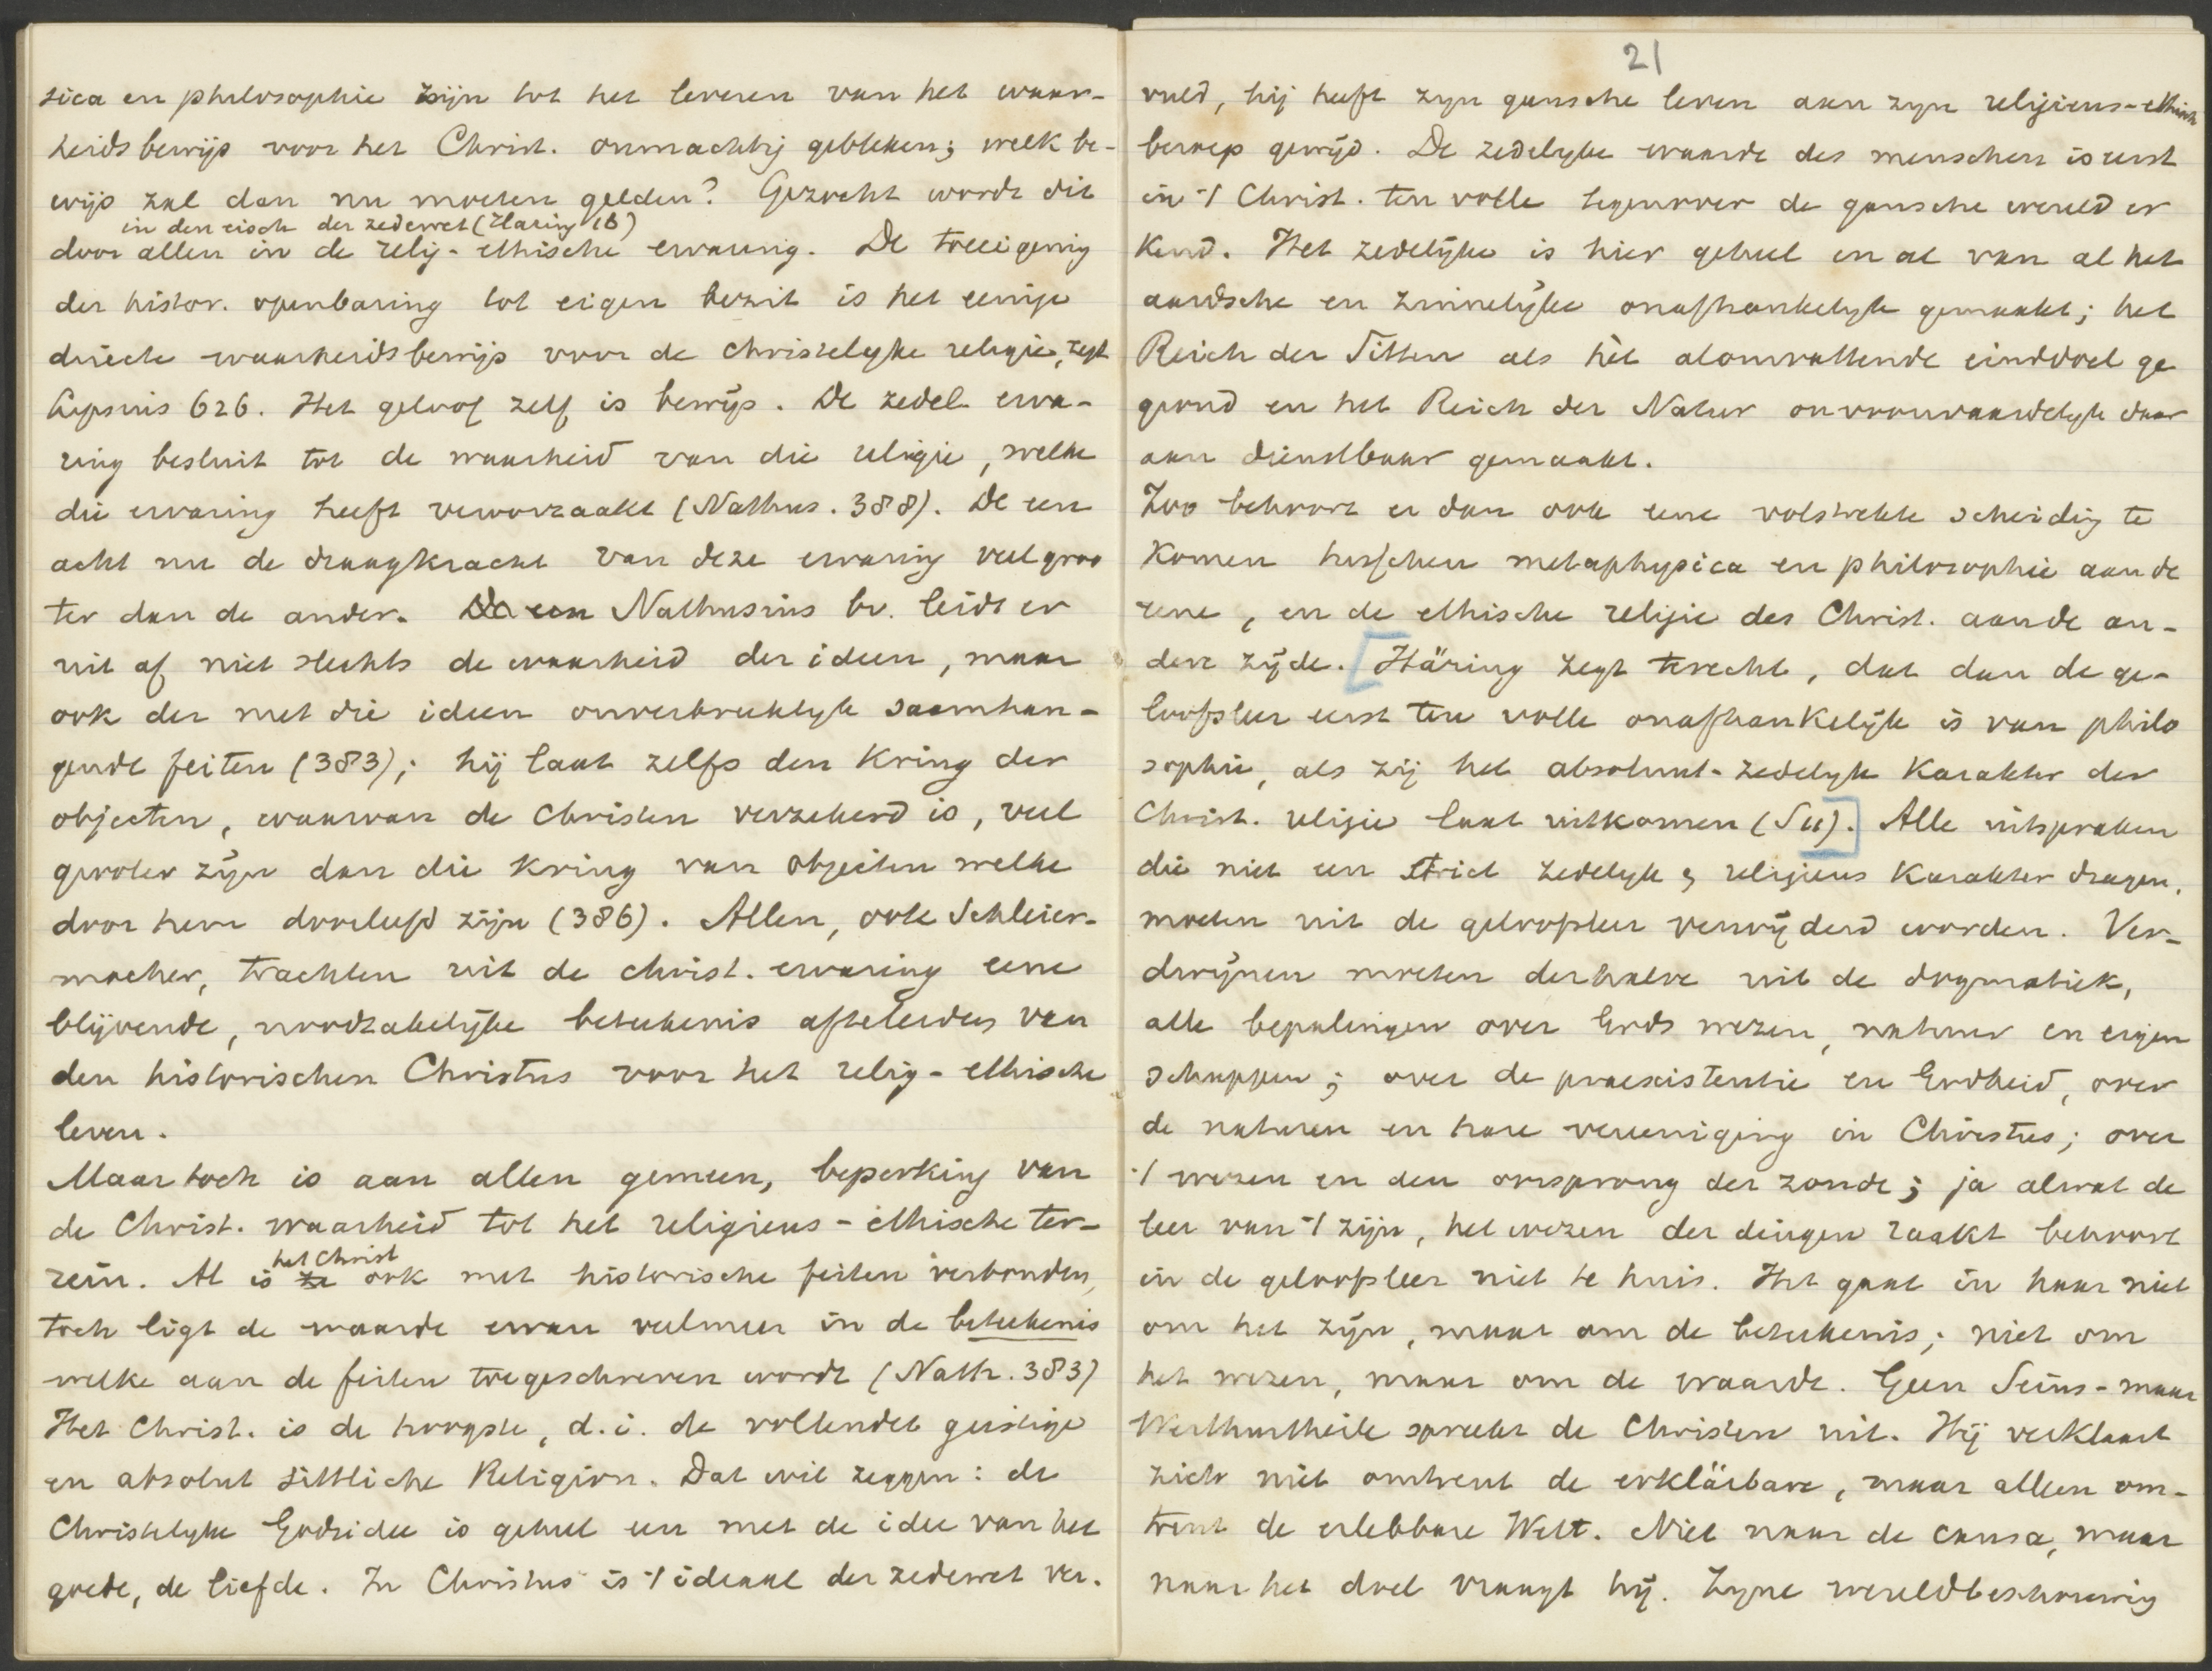 sica en philosophie zijn tot het leveren van het waar-
heidsbewijs voor het Christ. onmachtig gebleken; welk be-
wijs zal dan nu moeten gelden? Gezocht wordt dit
in den eisch der zedewet (Häring 18)
door allen in de relig-ethische ervaring. De toeeigening
der histor. openbaring tot eigen bezit is het eenige
directe waarheidsbewijs voor de christelyke religie, zegt
Lipsius 626. Het geloof zelf is bewijs. De zedel. erva-
ring besluit tot de waarheid van die religie, welke
die ervaring heeft veroorzaakt (Nathus. 388). De een
acht nu de draagkracht van deze ervaring veel groo
ter dan de ander. De een Nathusius bv. leidt er
uit af niet slechts de waarheid der ideen, maar
ook der met die ideen onverbrekelyk saamhan-
gende feiten (383); hij laat zelfs den Kring der
objecten, waarvan de Christen verzekerd is, veel
grooter zijn dan die Kring van objecten welke
door hem doorleefd zijn (386). Allen, ook Schleier-
macher, trachten uit de christ. ervaring eene
blijvende, noodzakelijke beteekenis afteleiden van
den historischen Christus voor het relig-ethische
leven.
Maar toch is aan allen gemeen, beperking van
de Christ. waarheid tot het religieus-ethische ter-
het Christ
rein. Al is ze ook met historische feiten verbonden,
toch ligt de waarde ervan veelmeer in de beteekenis
welke aan de feiten toegeschreven wordt (Nath. 383)
Het Christ. is de hoogste, d.i. de vollendet geistige
en absolut sittliche Religion. Dat wil zeggen: de
Christelyke Godsidee is geheel een met de idee van het
goede, de liefde. In Christus is 't ideaal der zedewet ver-
21
vuld, hij heeft zyn gansche leven aan zyn religieus-ethisch
beroep gewijd. De zedelyke waarde des menschen is eerst
in 't Christ. ten volle tegenover de gansche wereld er
kend. Het zedelijke is hier geheel en al van al het
aardsche en zinnelijke onafhankelyk gemaakt; het
Reich der Sitten als hèt alomvattende einddoel ge
grond en het Reich der Natur onvoorwaardelyk daar
aan dienstbaar gemaakt.
Zoo behoort er dan ook eene volstrekte scheidig te
Komen tusschen metaphysica en philosophie aan de
eene, en de ethische religie des Christ. aan de an-
dere zijde. [Häring zegt terecht, dat dan de ge-
loofsleer eerst ten volle onafhankelijk is van philo
sophie, als zij het absoluut-zedelyk Karakter der
Christ. religie laat uitkomen (S11).] Alle uitspraken
die niet een strict zedelyk & religieus Karakter dragen,
moeten uit de geloofsleer verwijderd worden. Ver-
dwijnen moeten derhalve uit de dogmatiek,
alle bepalingen over Gods wezen, natuur en eigen
schappen; over de praeexistentie en Godheid, over
de naturen en hare vereeniging in Christus; over
't wezen en den oorsprong der zonde; ja alwat de
leer van 't zijn, het wezen der dingen raakt behoort
in de geloofsleer niet te huis. Het gaat in haar niet
om het zijn, maar om de beteekenis; niet om
het wezen, maar om de waarde. Geen Seins-maar
Werthurtheile spreekt de Christen uit. Hij verklaart
zich niet omtrent de erklärbare, maar alleen om-
trent de erlebbare Welt. Niet naar de causa, maar
naar het doel vraagt hij. Zyne wereldbeschouwing